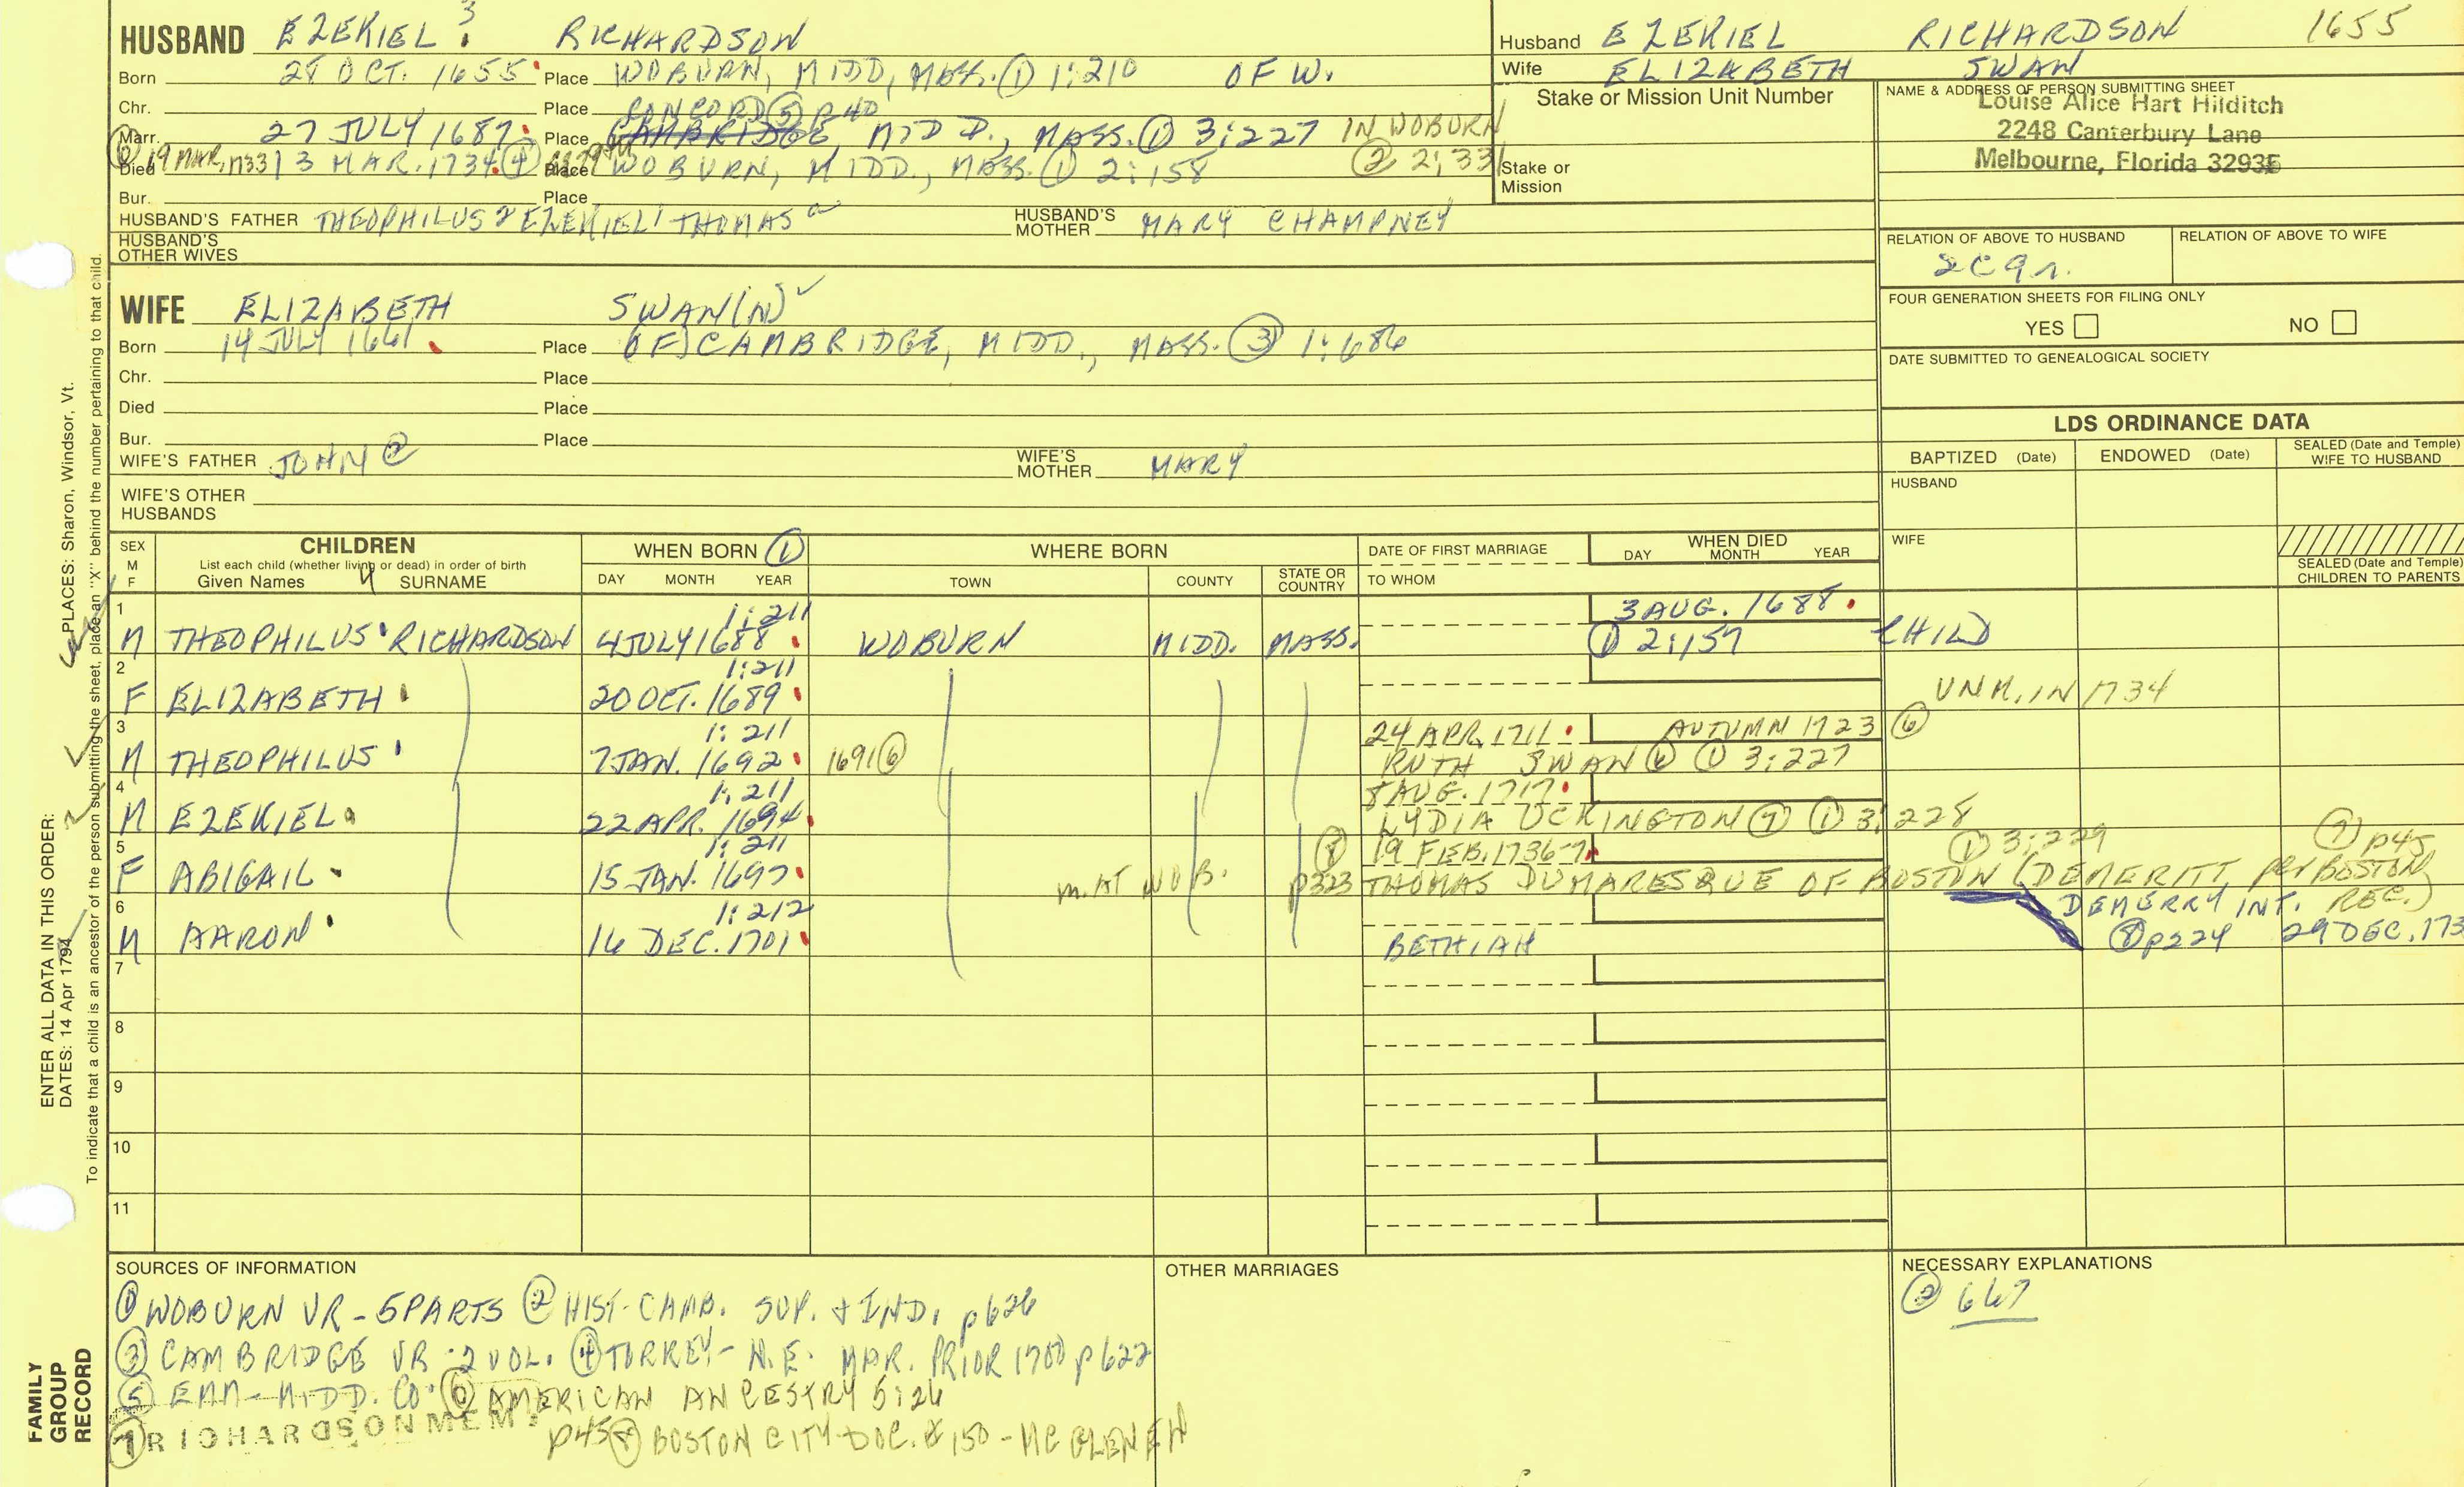 HUSBAND EZEKIEL 3 RICHARDSON
Born 28 OCT. 1655 Place WOBURN, MIDD, MASS. ① 1:210 OF W.
Chr. Place CONCORD ⑤ P40
Marr. 27 JULY 1687 Place CAMBRIDGE, MIDD., MASS. ① 3:227 IN WOBURN
Died ① 19 MAR, 1733 | 3 MAR. 1734 ④ Place WOBURN, MIDD., MASS. ① 2:158 ② 2:33
Bur. Place
HUSBAND'S FATHER THEOPHILUS 2 EZEKIEL 1 THOMAS a HUSBAND'S MOTHER MARY CHAMPNEY
HUSBAND'S OTHER WIVES
Husband EZEKIEL RICHARDSON 1655
Wife ELIZABETH SWAN
Stake or Mission Unit Number
Stake or Mission
NAME & ADDRESS OF PERSON SUBMITTING SHEET
Louise Alice Hart Hilditch
2248 Canterbury Lane
Melbourne, Florida 32935
RELATION OF ABOVE TO HUSBAND RELATION OF ABOVE TO WIFE
2C9r.
FOUR GENERATION SHEETS FOR FILING ONLY
YES NO
DATE SUBMITTED TO GENEALOGICAL SOCIETY
WIFE ELIZABETH SWAN(N)
Born 14 JULY 1661 Place (OF) CAMBRIDGE, MIDD., MASS. ③ 1:686
Chr. Place
Died Place
Bur. Place
WIFE'S FATHER JOHN ② WIFE'S MOTHER MARY
WIFE'S OTHER HUSBANDS
LDS ORDINANCE DATA
BAPTIZED (Date) ENDOWED (Date) SEALED (Date and Temple) WIFE TO HUSBAND
HUSBAND
WIFE
SEALED (Date and Temple) CHILDREN TO PARENTS
SEX M F
CHILDREN
List each child (whether living or dead) in order of birth
Given Names 4 SURNAME
WHEN BORN ①
DAY MONTH YEAR
WHERE BORN
TOWN COUNTY STATE OR COUNTRY
DATE OF FIRST MARRIAGE
TO WHOM
WHEN DIED
DAY MONTH YEAR
1 1:211 3 AUG. 1688
M THEOPHILUS RICHARDSON 4 JULY 1688 WOBURN MIDD. MASS. ① 2:157 CHILD
2 1:211
F ELIZABETH 20 OCT. 1689 UNM. IN 1734
3 1:211 24 APR. 1711 AUTUMN 1723 ⑥
M THEOPHILUS 7 JAN. 1692 1691 ⑥ RUTH SWAN ⑥ ① 3:227
4 1:211 8 AUG. 1717
M EZEKIEL 22 APR. 1694 LYDIA UCKINGTON ⑦ ① 3:228
5 1:211 ⑧ 19 FEB. 1736-7 ① 3:229 ⑦ p45
F ABIGAIL 15 JAN. 1697 m. AT WOB. p323 THOMAS DUMARESQUE OF BOSTON (DEMERITT, per BOSTON REC.)
6 1:212 DEMERRY INT.
M AARON 16 DEC. 1701 BETHIAH ⑧ p224 29 DEC. 173
7
8
9
10
11
SOURCES OF INFORMATION
① WOBURN VR - 5 PARTS ② HIST-CAMB. SUP. + IND. p626
③ CAMBRIDGE VR 2 VOL. ④ TORREY - N.E. MAR. PRIOR 1700 p622
⑤ EMM - MIDD. CO. ⑥ AMERICAN ANCESTRY 5:26
⑦ RICHARDSON MEM. p45 ⑧ BOSTON CITY DOC. # 150 - MCGLENEN
OTHER MARRIAGES
NECESSARY EXPLANATIONS
② 667
ENTER ALL DATA IN THIS ORDER:
DATES: 14 Apr 1794 PLACES: Sharon, Windsor, Vt.
To indicate that a child is an ancestor of the person submitting the sheet, place an "X" behind the number pertaining to that child.
FAMILY
GROUP
RECORD